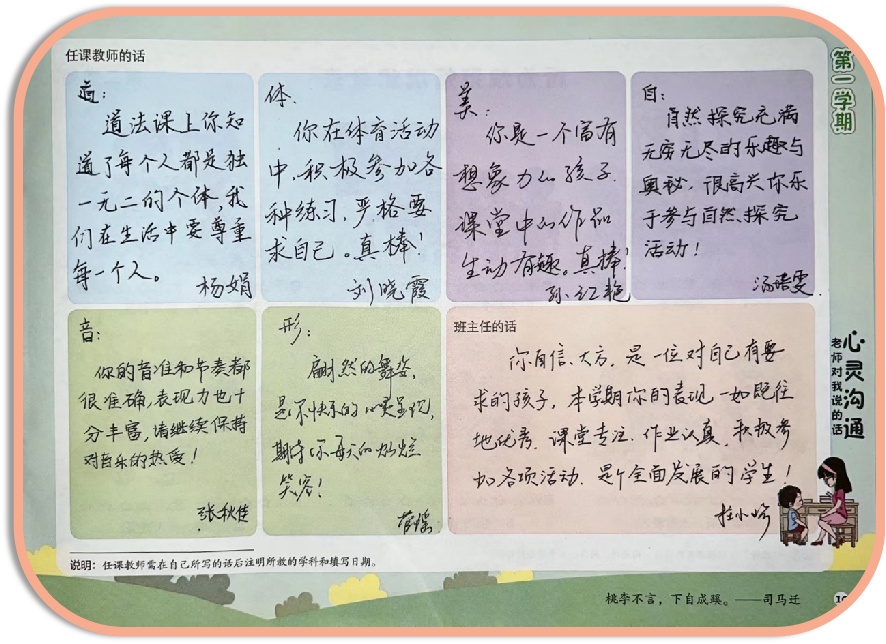 任课教师的话
道:
道法课上你知
道了每个人都是独
一元二的个体,我
们在生活中要尊重
每一个人。
杨娟
体:
你在体育活动
中,积极参加各
种练习,严格要
求自己。真棒!
刘晓霞
美:
你是一个富有
想象力的孩子
课堂中的作品
生动有趣。真棒!
孙红艳
自:
自然探究充满
无穷无尽的乐趣与
奥秘,很高兴你乐
于参与自然探究
活动!
汤晴雯
音:
你的音准和节奏都
很准确,表现力也十
分丰富,请继续保持
对音乐的热爱!
张秋佳
形:
翩然的舞姿,
是你快乐的心灵呈现,
期待你每天的灿烂
笑容!
班主任的话
你自信、大方,是一位对自己有要
求的孩子,本学期你的表现一如既往
地优秀,课堂专注,作业认真,积极参
加各项活动,是个全面发展的学生!
杜小娇
说明:任课教师需在自己所写的话后注明所教的学科和填写日期。
桃李不言,下自成蹊。——司马迁
第一学期
心灵沟通
老师对我说的话